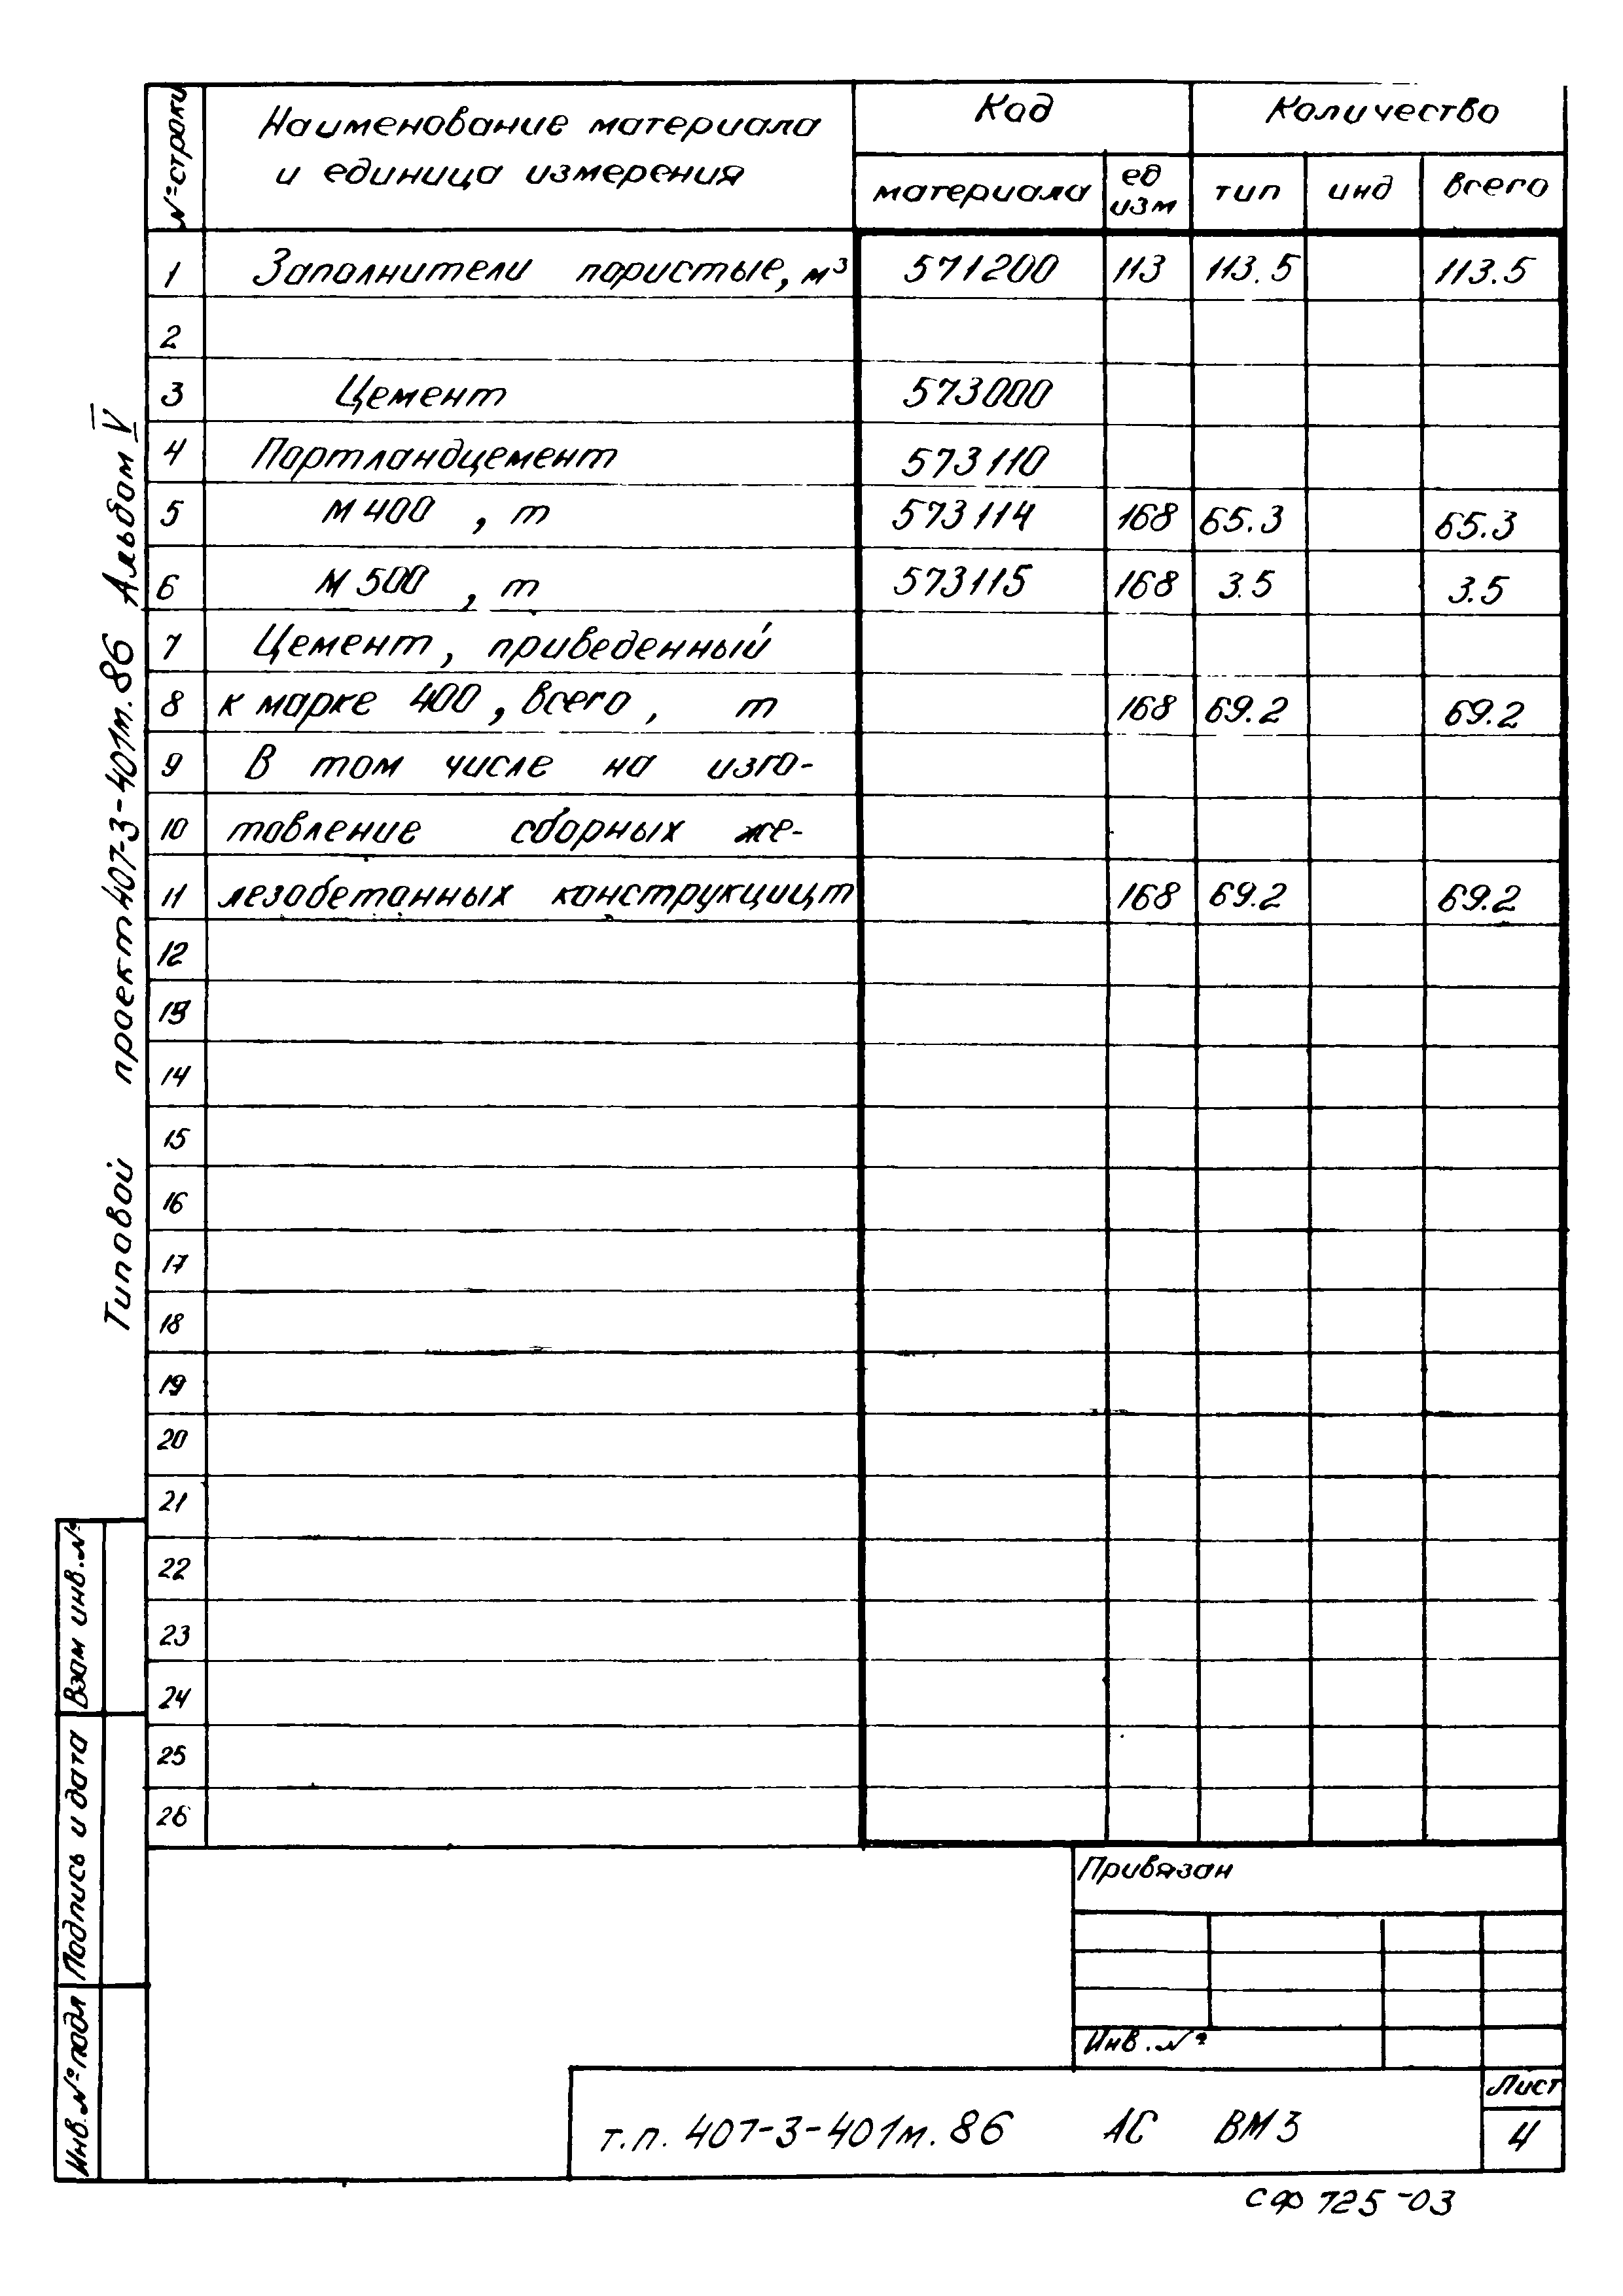 Типовой проект 407-3-401м.86 Альбом V
№ строки
Наименование материала
и единица измерения
Код
Количество
материала
ед
изм
тип
инд
всего
1 Заполнители пористые, м³ 571200 113 113.5 113.5
2
3 Цемент 573000
4 Портландцемент 573110
5 М 400 , т 573114 168 65.3 65.3
6 М 500 , т 573115 168 3.5 3.5
7 Цемент, приведенный
8 к марке 400, всего, т 168 69.2 69.2
9 В том числе на изго-
10 товление сборных же-
11 лезобетонных конструкций, т 168 69.2 69.2
12
13
14
15
16
17
18
19
20
21
22
23
24
25
26
Взам инв. №
Подпись и дата
Инв. № подл
Привязан
Инв. №
т.п. 407-3-401м. 86 АС ВМ3
Лист
4
сф 725-03